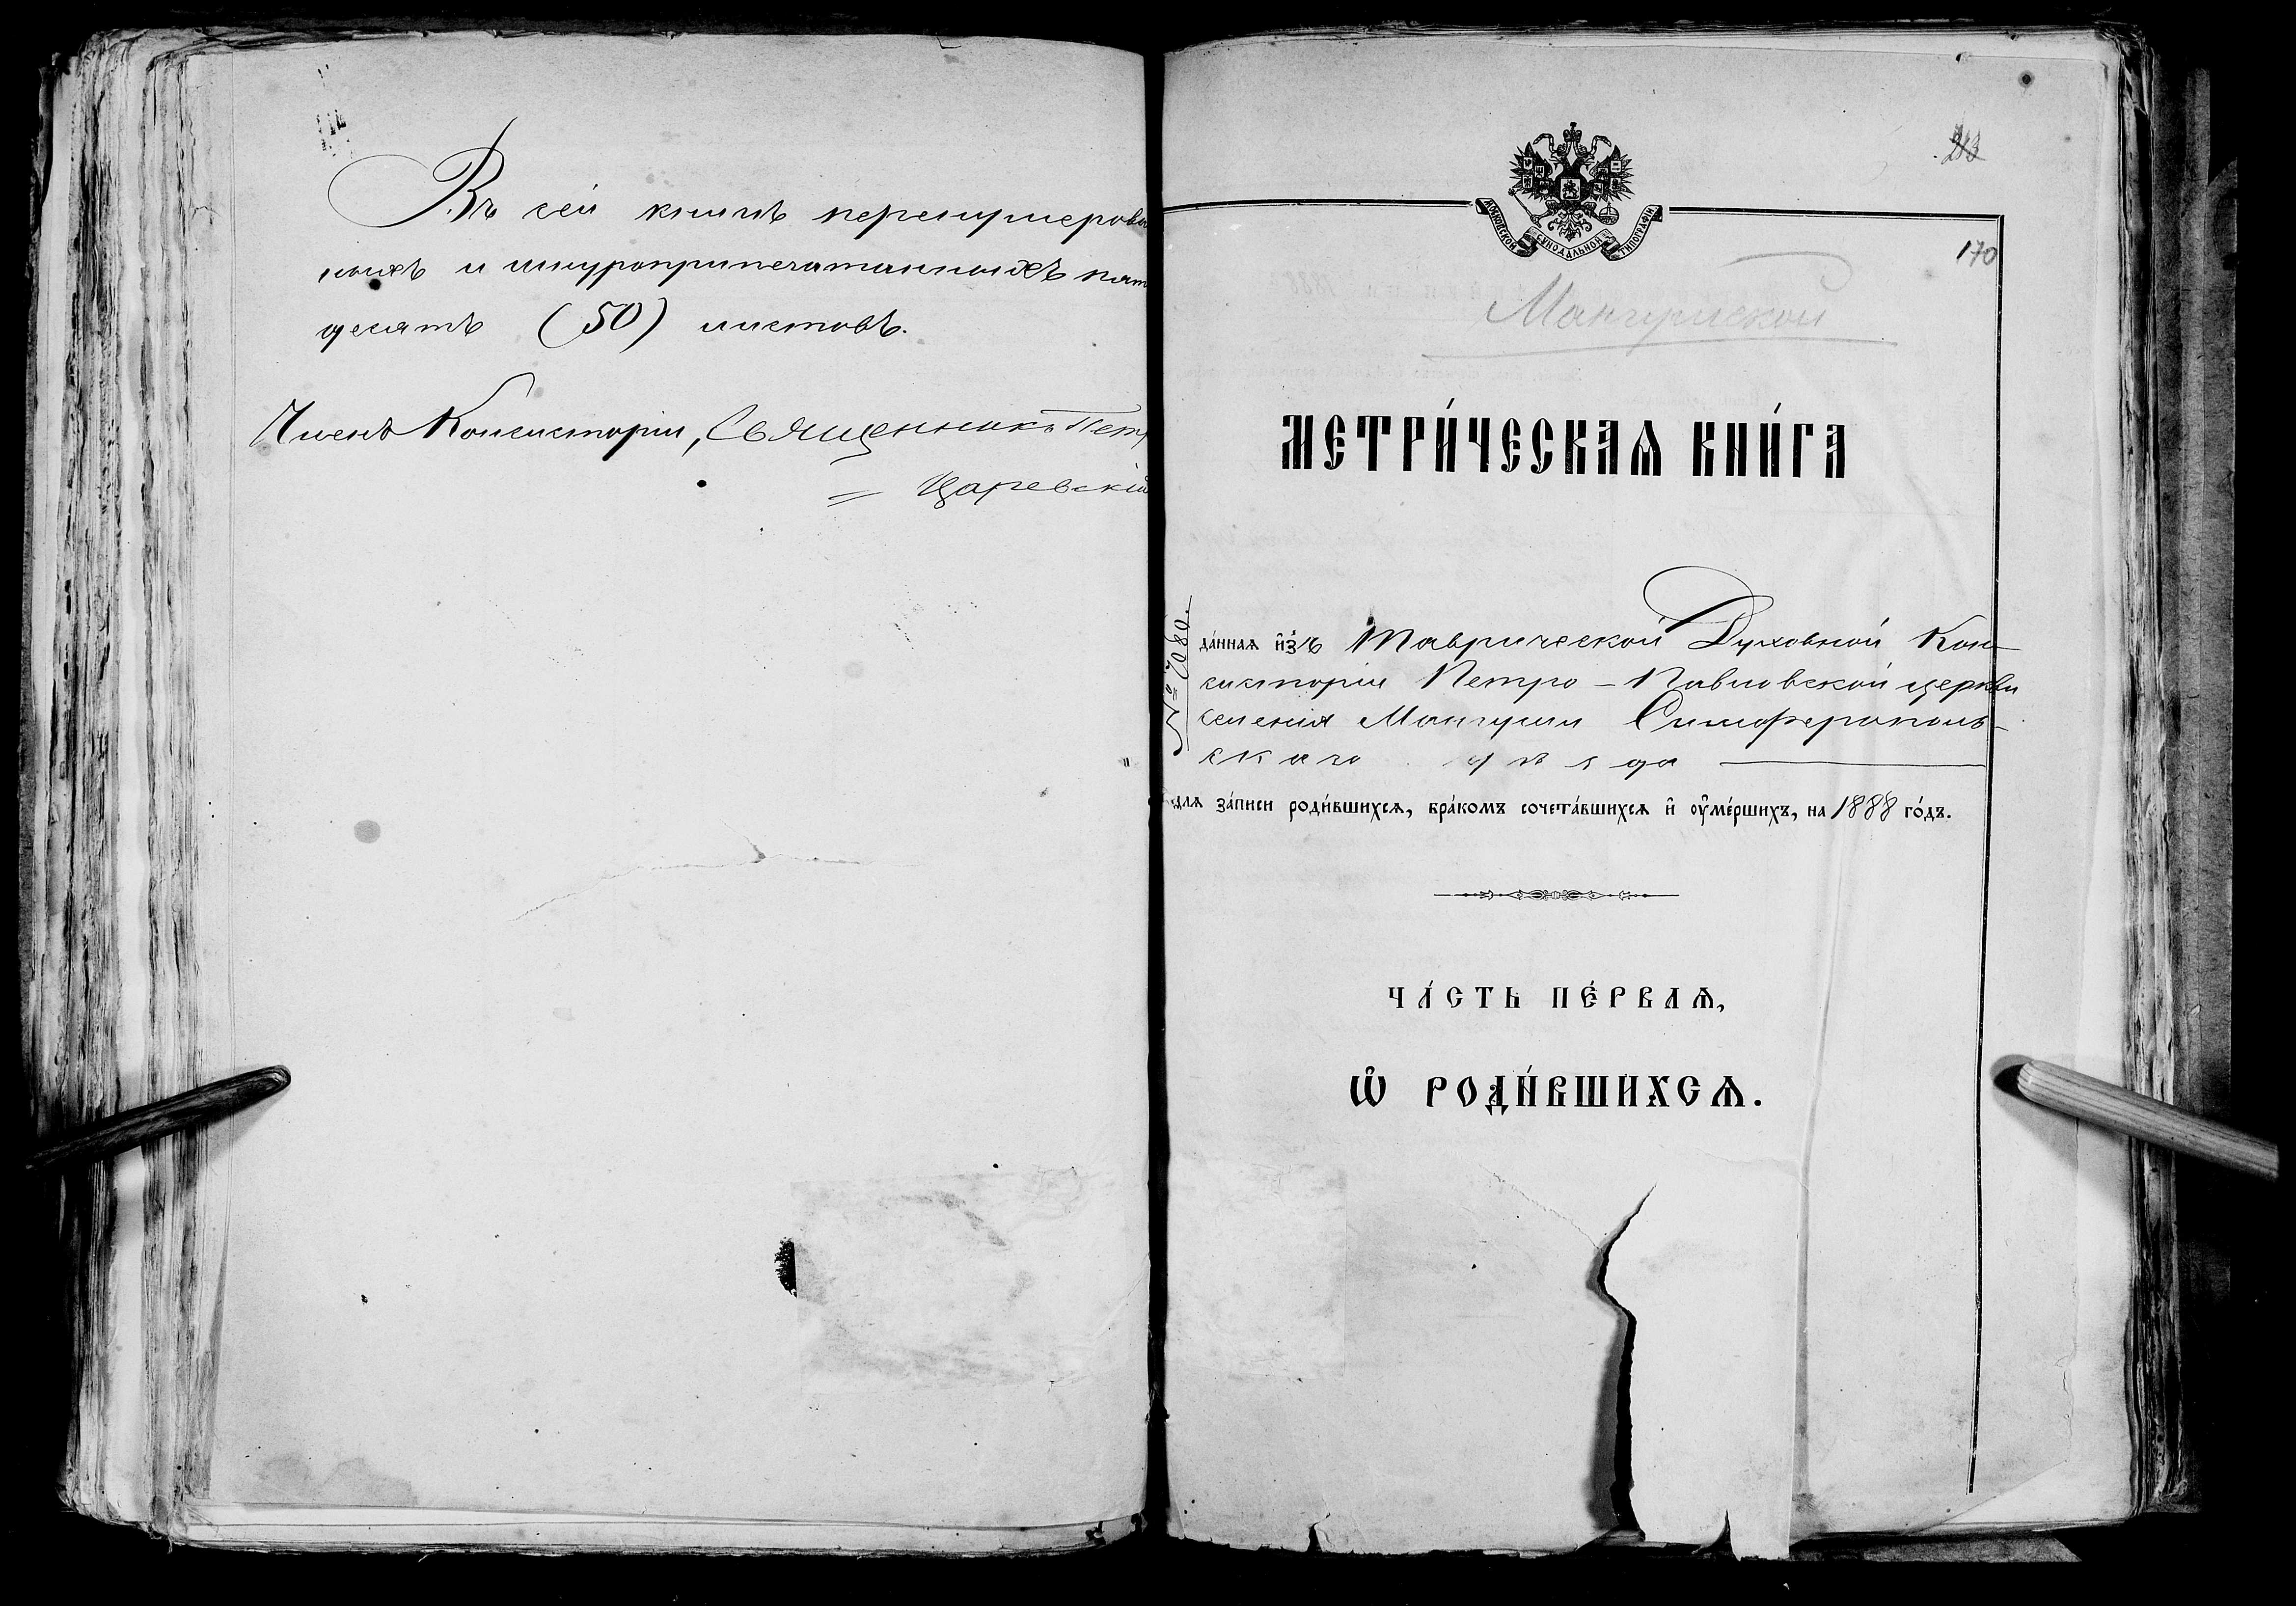 Въ сей книгѣ перенумерова
ныхъ и шнуроприпечатанныхъ пят
десятъ (50) листовъ.
Членъ Консисторіи, Священникъ Петр
Царевскій
МОСКОВСКОЙ СѴНОДАЛЬНОЙ ТИПОГРАФІИ
170
Мангушской
МЕТРИ́ЧЕСКАѦ КНИ́ГА
№ 7080.
да́ннаѧ и҆зъ Таврической Духовной Кон-
систоріи Петро-Павловской церкви
селенія Мангуши Симферополь-
скаго уѣзда
для за́писи роди́вшихсѧ, бра́комъ сочета́вшихсѧ и҆ ᲂу҆ме́ршихъ, на 1888 го́дъ.
ЧА́СТЬ ПЕ́РВАѦ,
Ѡ҆ РОДИ́ВШИХСѦ.